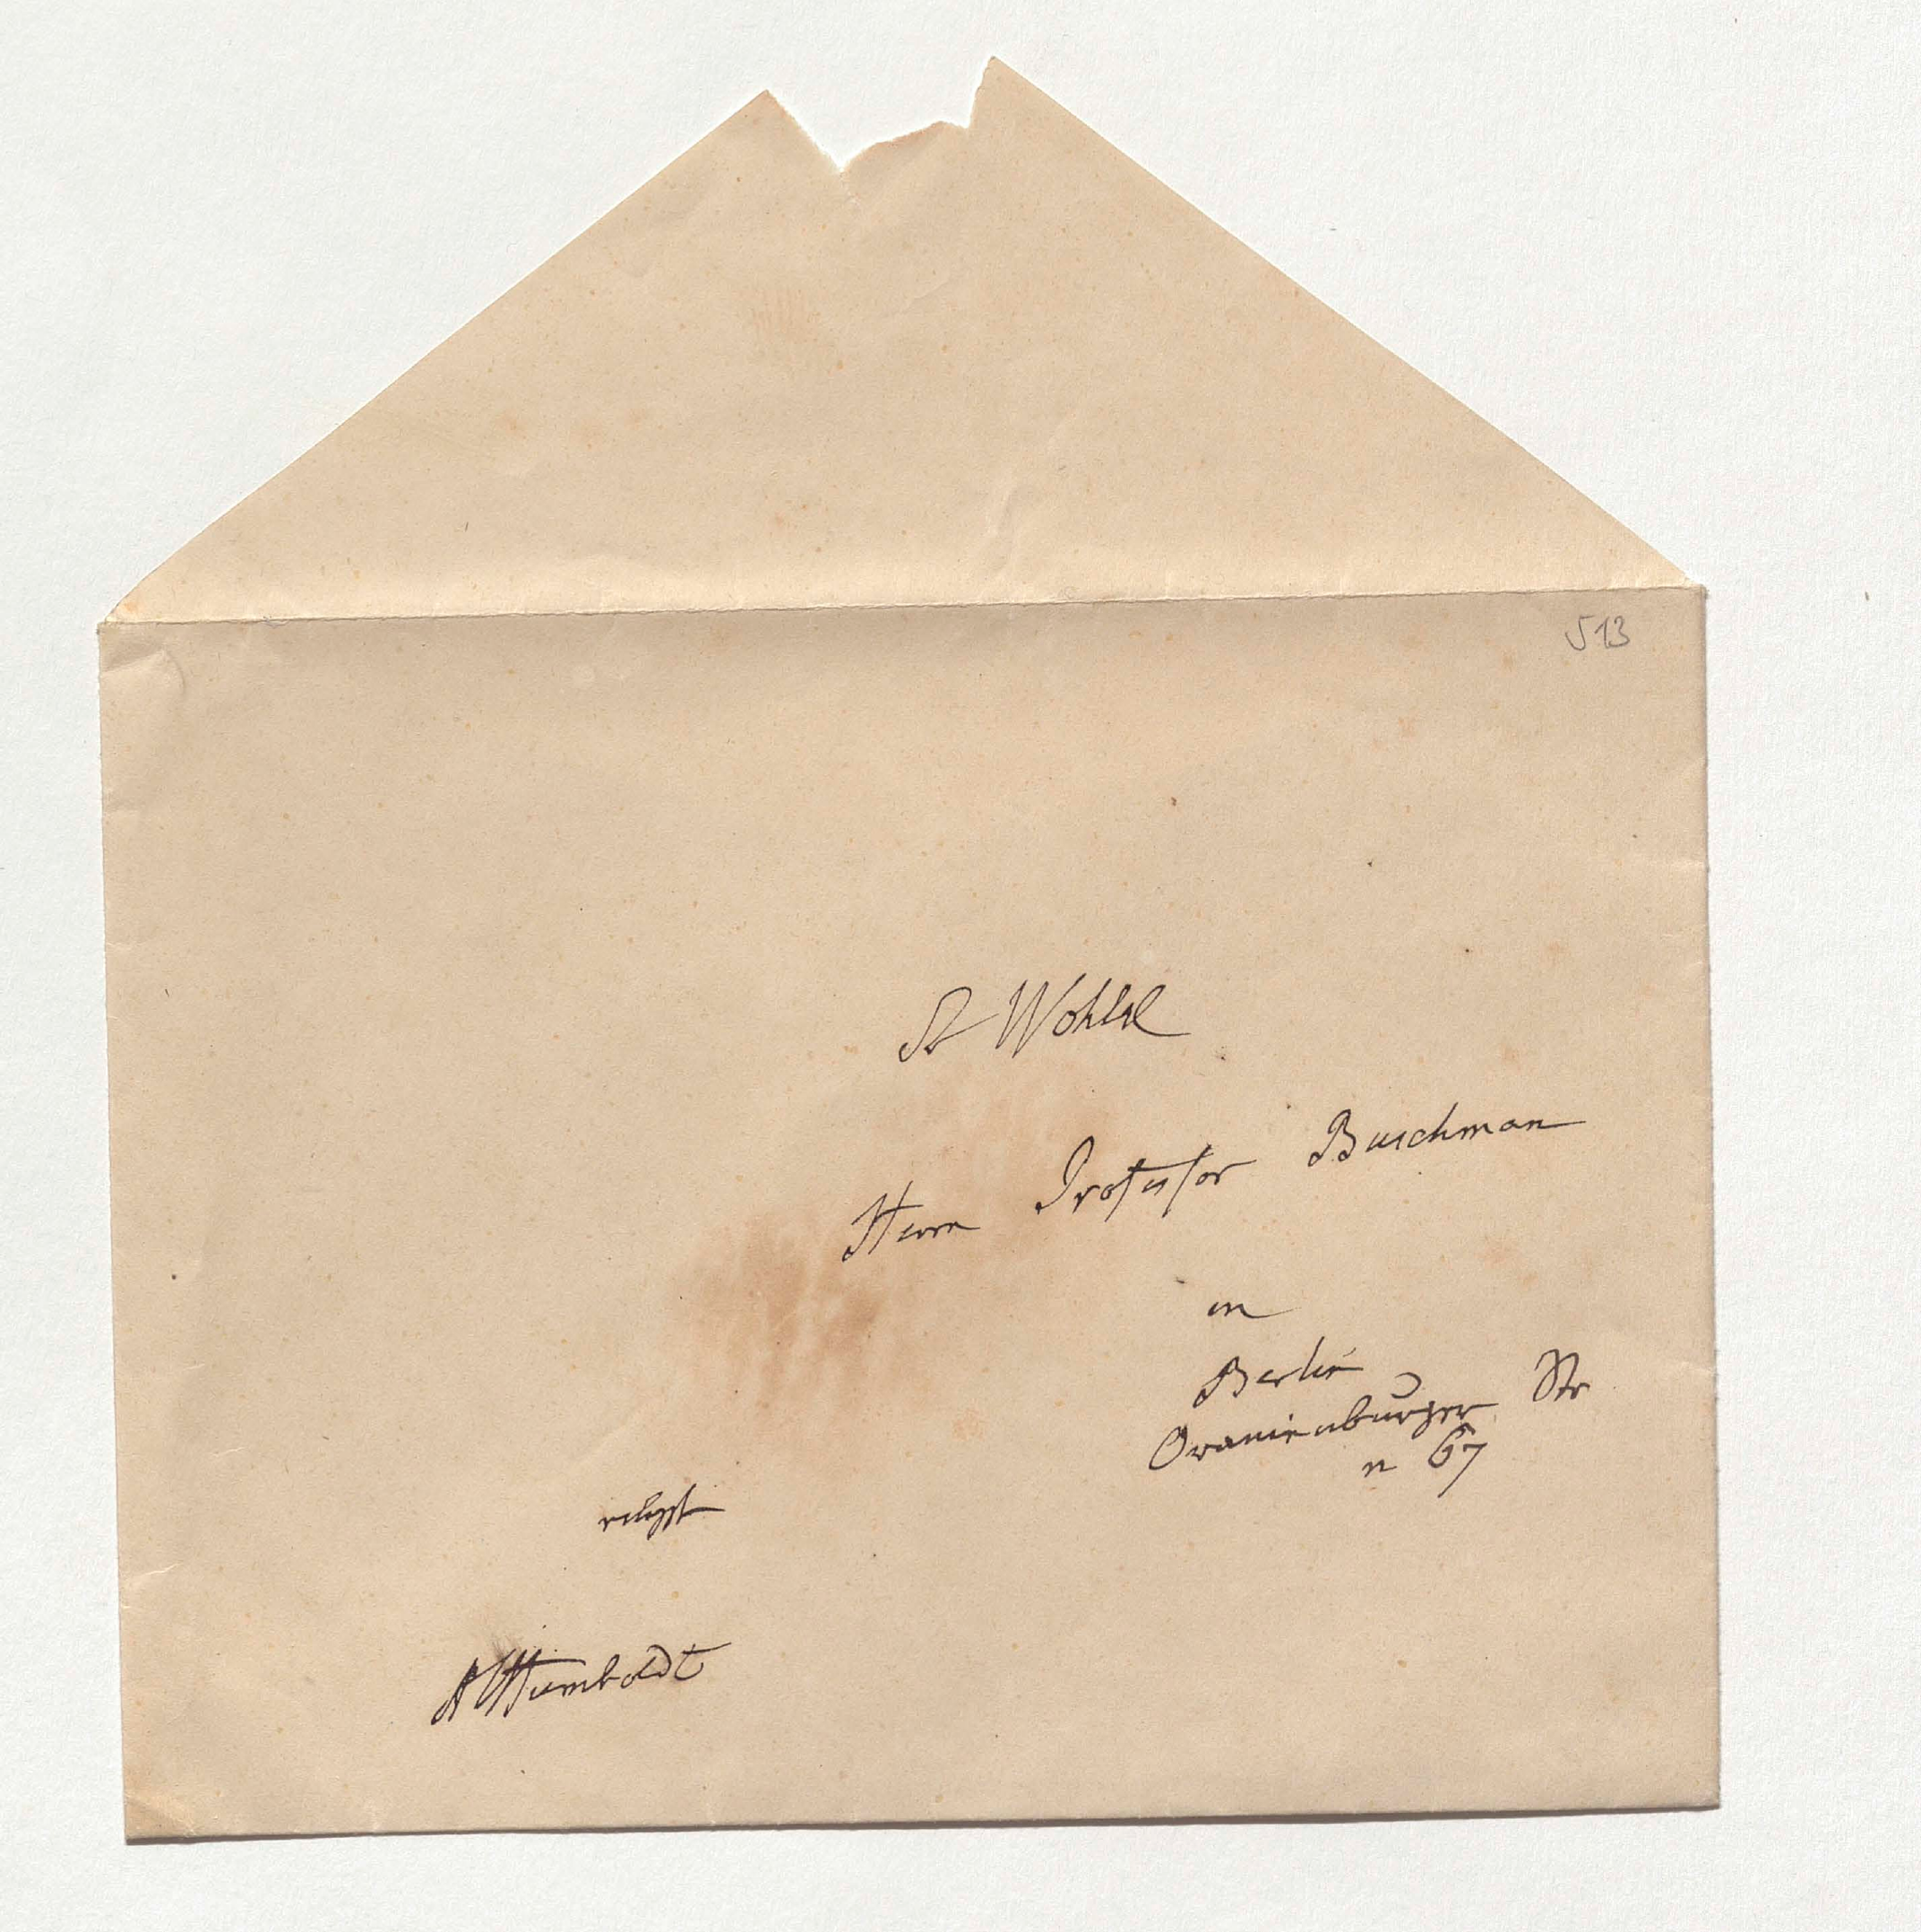 513
Sr Wohlgl
Herrn Professor Buschman
in
Berlin
Oranienburger Str
n 67
AvHumboldt